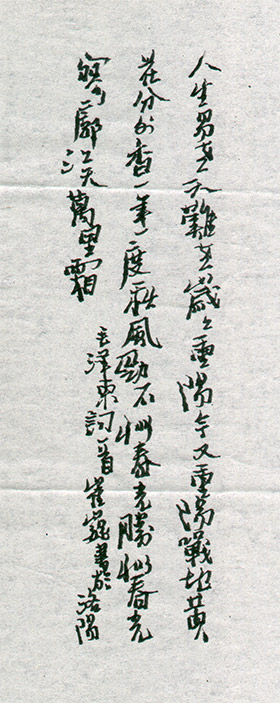 人生易老天難老歲々重陽今又重陽戰地黄
花分外香一年一度秋風勁不似春光勝似春光
寥廓江天萬里霜 毛澤東詞一首 崔巍書於洛陽